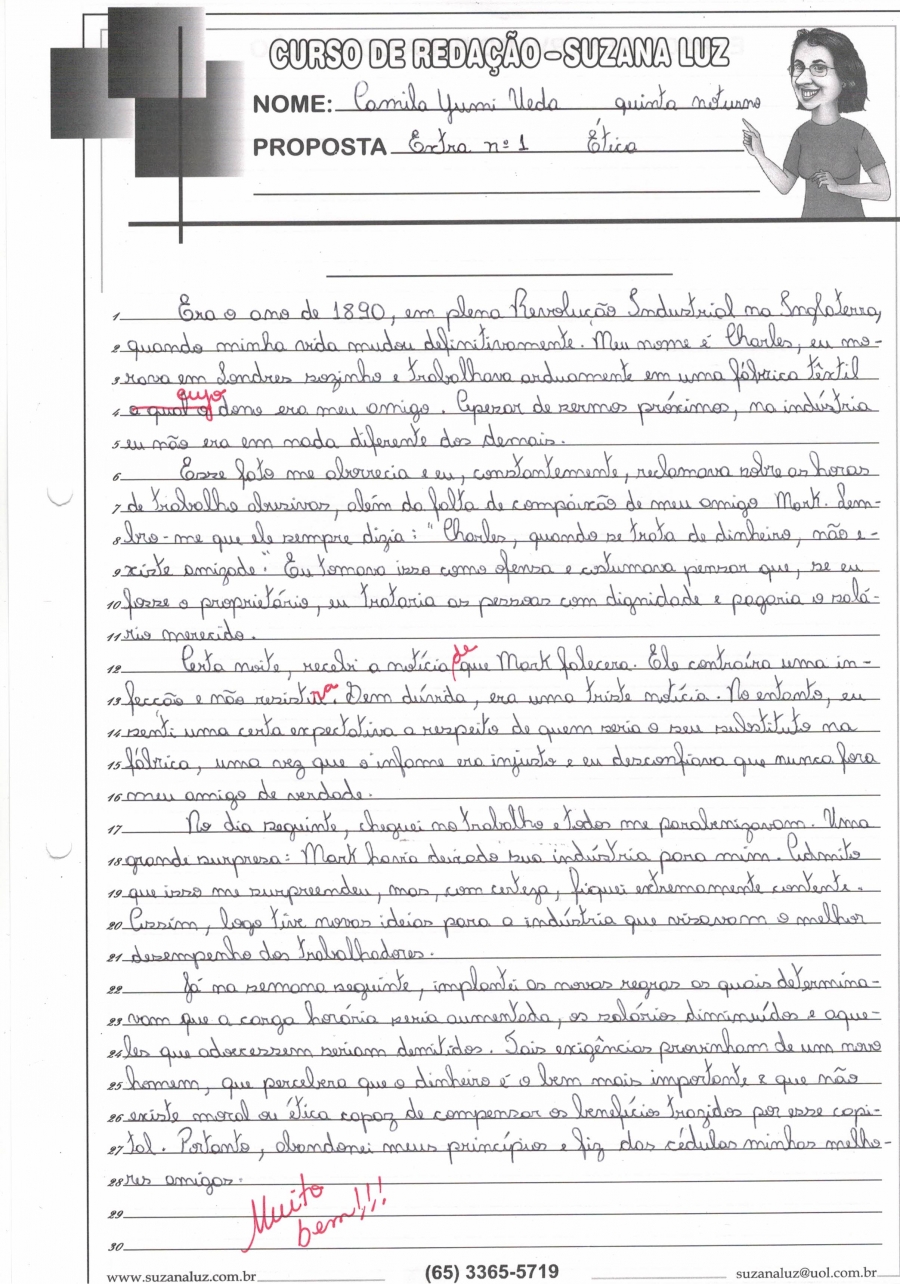 CURSO DE REDAÇÃO - SUZANA LUZ
NOME: Camila Yumi Ueda quinta noturno
PROPOSTA Extra nº 1 Ética
1 Era o ano de 1890, em plena Revolução Industrial na Inglaterra,
2 quando minha vida mudou definitivamente. Meu nome é Charles, eu mo-
3 rava em Londres sozinho e trabalhava arduamente em uma fábrica têxtil
cujo
4 a qual o dono era meu amigo. Apezar de sermos próximos, na indústria
5 eu não era em nada diferente dos demais.
6 Esse fato me aborrecia e eu, constantemente, reclamava sobre as horas
7 de trabalho abusivas, além da falta de compaixão de meu amigo Mark. Lem-
8 bro-me que ele sempre dizia: "Charles, quando se trata de dinheiro, não e-
9 xiste amizade." Eu tomava isso como ofensa e costumava pensar que, se eu
10 fosse o proprietário, eu trataria as pessoas com dignidade e pagaria o salá-
11 rio merecido.
de
12 Certa noite, recebi a notícia que Mark falecera. Ele contraíra uma in-
ra
13 fecção e não resisti. Sem dúvida, era uma triste notícia. No entanto, eu
14 senti uma certa expectativa a respeito de quem seria o seu substituto na
15 fábrica, uma vez que o infame era injusto e eu desconfiava que nunca fora
16 meu amigo de verdade.
17 No dia seguinte, cheguei no trabalho e todos me parabenizavam. Uma
18 grande surpresa: Mark havia deixado sua indústria para mim. Admito
19 que isso me surpreendeu, mas, com certeza, fiquei extremamente contente.
20 Assim, logo tive novas ideias para a indústria que visavam o melhor
21 desempenho dos trabalhadores.
22 Já na semana seguinte, implantei as novas regras as quais determina-
23 vam que a carga horária seria aumentada, os salários diminuídos e aque-
24 les que adoecessem seriam demitidos. Tais exigências provinham de um novo
25 homem, que percebera que o dinheiro é o bem mais importante e que não
26 existe moral ou ética capaz de compensar os benefício trazidos por esse capi-
27 tal. Portanto, abandonei meus princípios e fiz das cédulas minhas melho-
28 res amigas.
29 Muito
bem!!!
30
www.suzanaluz.com.br (65) 3365-5719 suzanaluz@uol.com.br